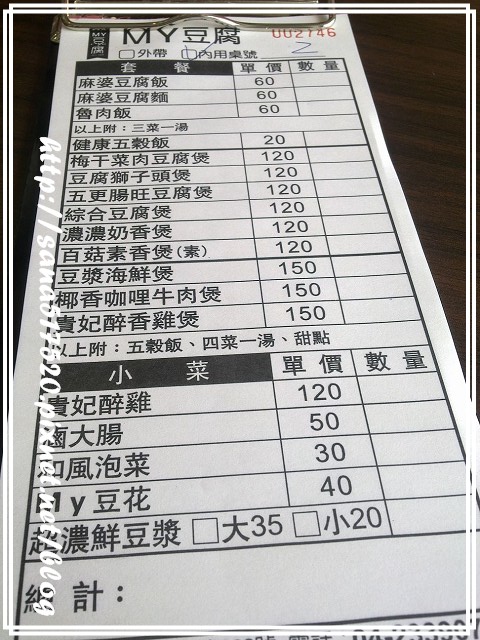 MY豆腐
MY豆腐 002746
□外帶 □內用桌號 2
套餐 單價 數量
麻婆豆腐飯 60
麻婆豆腐麵 60
魯肉飯 60
以上附：三菜一湯
健康五穀飯 20
梅干菜肉豆腐煲 120
豆腐獅子頭煲 120
五更腸旺豆腐煲 120
綜合豆腐煲 120
濃濃奶香煲 120
百菇素香煲(素) 120
豆漿海鮮煲 150
椰香咖哩牛肉煲 150
貴妃醉香雞煲 150
以上附：五穀飯、四菜一湯、甜點
小菜 單價 數量
貴妃醉雞 120
滷大腸 50
和風泡菜 30
My豆花 40
超濃鮮豆漿 □大35 □小20
總計：